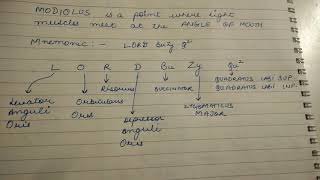 MODIOLUS is a point where eight
muscles meet at the ANGLE OF MOUTH
Mnemonic :- LORD BuZy q²
L O R D Bu Zy Qu²
Levator Anguli Oris
Orbicularis Oris
Risorius
Depressor Anguli Oris
BUCCINATOR
ZYGOMATICUS MAJOR
QUADRATUS LABI SUP.
QUADRATUS LABI INF.